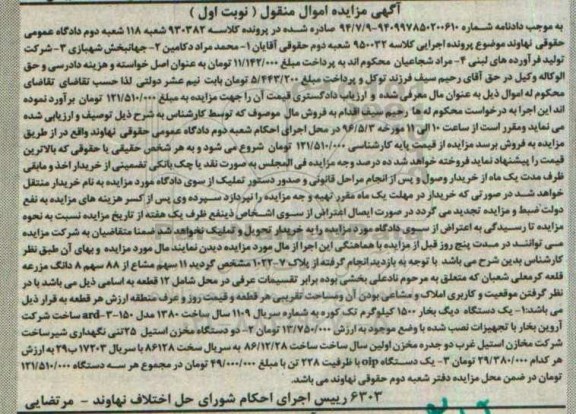 آگهی مزایده اموال منقول ( نوبت اول )
به موجب دادنامه شماره ۹۴۰۹۹۷۸۵۰۲۰۰۶۱۰-۹۴/۷/۹ صادره شده در پرونده کلاسه ۹۳۰۳۸۲ شعبه ۱۱۸ شعبه دوم دادگاه عمومی
حقوقی نهاوند موضوع پرونده اجرایی کلاسه ۹۵۰۰۳۲ شعبه دوم حقوقی آقایان ۱- محمد مراد دکامین ۲- جهانبخش شهبازی ۳- شرکت
تولید فرآورده های لبنی ۴- مراد شجاعیان محکوم اند به پرداخت مبلغ ۱۱/۱۴۲/۰۰۰ تومان به عنوان اصل خواسته و هزینه دادرسی و حق
الوکاله وکیل در حق آقای رحیم سیف فرزند توکل و پرداخت مبلغ ۵/۴۴۳/۲۰۰ تومان بابت نیم عشر دولتی لذا حسب تقاضای تقاضای
محکوم له اموال ذیل به عنوان مال معرفی شده و ارزیاب دادگستری قیمت آن را جهت مزایده به مبلغ ۱۲۱/۵۱۰/۰۰۰ تومان برآورد نموده
اند این اجرا به درخواست محکوم له ها رحیم سیف اقدام به فروش مال موصوف که توسط کارشناس به شرح ذیل توصیف و ارزیابی شده
می نماید و مقرر است از ساعت ۱۰ الی ۱۱ مورخه ۹۶/۵/۳ در محل اجرای احکام شعبه دوم دادگاه عمومی حقوقی نهاوند واقع در از طریق
مزایده به فروش برسد مزایده از قیمت پایه کارشناسی ۱۲۱/۵۱۰/۰۰۰ تومان شروع می شود و به هر شخص حقیقی یا حقوقی که بالاترین
قیمت را پیشنهاد نماید فروخته خواهد شد ده درصد وجه مزایده فی المجلس به صورت نقد یا چک بانکی تضمینی از خریدار اخذ و مابقی
ظرف مدت یک ماه از خریدار وصول و پس از انجام مراحل قانونی و صدور دستور تملیک از سوی دادگاه مورد مزایده به نام خریدار منتقل
خواهد شد در صورتی که خریدار در مهلت یک ماه مقرر بقیه وجه مزایده را نپردازد سپرده وی پس از کسر هزینه های مزایده به نفع
دولت ضبط و مزایده تجدید می گردد در صورت ایصال اعتراض از سوی اشخاص ذینفع ظرف یک هفته از تاریخ مزایده نسبت به نحوه
مزایده تا رسیدگی به اعتراض از سوی دادگاه مورد مزایده را به خریدار تحویل و تملیک نخواهد شد ضمنا متقاضیان به شرکت مزایده
می توانند در مدت پنج روز قبل از مزایده با هماهنگی این اجرا از مال مورد مزایده دیدن نمایند مال مورد مزایده و بهای آن طبق نظر
کارشناس بدین شرح می باشد با توجه به بازدید انجام گرفته از پلاک ۷-۱۰۲۲ مشخص گردید ۱۱ سهم مشاع از ۸۸ سهم ۸ دانگ مزرعه
قلعه کرمعلی شعبان که متعلق به مرحوم نادعلی بخشی بوده برابر تقسیمات عرفی در محل شامل ۱۲ قطعه به اسامی ذیل می باشد با در
نظر گرفتن موقعیت و کاربری املاک و مشاعی بودن آن و مساحت تقریبی هر قطعه و قیمت روز و عرف منطقه ارزش هر قطعه به قرار ذیل
می باشد: ۱- یک دستگاه دیگ بخار ۱۵۰۰ کیلوگرم تک کوره به شماره سریال ۱۱۰۹ سال ساخت ۱۳۸۰ مدل ard-۳-۱۵۰ ساخت شرکت
آروین بخار با تجهیزات نصب شده با وضع موجود به ارزش ۱۳/۷۵۰/۰۰۰ تومان ۲- دو دستگاه مخزن استیل ۲۵ تنی نگهداری شیر ساخت
شرکت مخازن استیل غرب دو جدره مخزن اولین سال ساخت ساخت ۸۶/۱۲/۲۸ به سریال سخت ۸۶۱۲۸ با سریال ۱۷۲۰۳ ب ۲۹ به ارزش
هر کدام ۲۹/۳۸۰/۰۰۰ تومان ۳- یک دستگاه olp با ظرفیت ۲۲۸ تن با مبلغ ۴۹/۰۰۰/۰۰۰ تومان در مجموع هر سه دستگاه ۱۲۱/۵۱۰/۰۰۰
تومان در ضمن محل مزایده دفتر شعبه دوم حقوقی نهاوند می باشد.
۶۳۰۳ رییس اجرای احکام شورای حل اختلاف نهاوند - مرتضایی